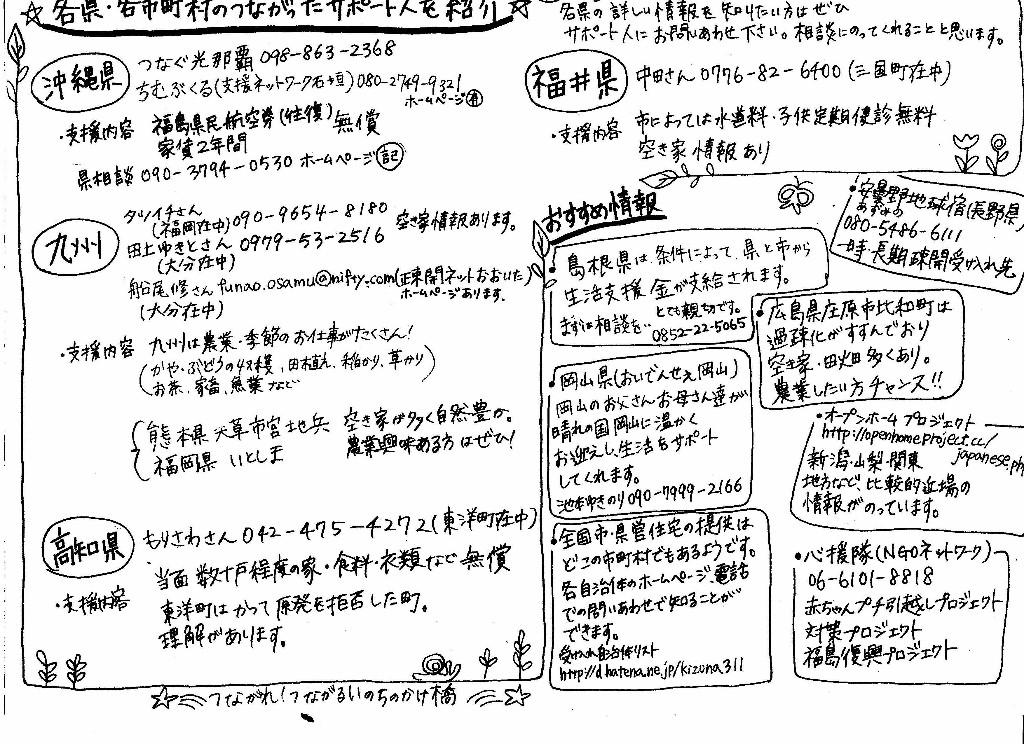 各県・各市町村のつながったサポート人を紹介
沖縄県
つなぐ光那覇 098-863-2368
ちむぶくる(支援ネットワーク石垣) 080-2749-9321
ホームページ有
・支援内容
福島県民航空券(往復) 無償
家賃2年間
県相談 090-3794-0530 ホームページ記
九州
タツイチさん
(福岡在中) 090-9654-8180
空き家情報あります。
田上ゆきとさん 0979-53-2516
(大分在中)
船尾修さん funao.osamu@nifty.com (疎開ネットおおいた)
(大分在中)
ホームページあります。
・支援内容
九州は農業・季節のお仕事がたくさん!
(かや・ぶどうの収穫、田植え、稲かり、草かり
お茶、家畜、魚業など)
熊本県 天草市宮地兵 空き家が多く自然豊か。
福岡県 いとしま 農業興味ある方はぜひ!
高知県
もりさわさん 042-475-4272 (東洋町在中)
・支援内容
当面 数十戸程度の家・食料・衣類など無償
東洋町はかつて原発を拒否した町。
理解があります。
☆つながれ!つながるいのちのかけ橋☆
各県の詳しい情報を知りたい方はぜひ
サポート人にお問いあわせ下さい。相談にのってくれることと思います。
福井県
中田さん 0776-82-6400 (三国町在中)
・支援内容
市によっては水道料・子供定期健診無料
空き家情報あり
おすすめ情報
・安曇野地球宿(長野県)
あずみの
080-5486-6111
一時・長期疎開受け入れ先
・島根県は、条件によって、県と市から
生活支援金が支給されます。
とても親切です。
まずは相談を… 0852-22-5065
・広島県庄原市比和町は
過疎化がすすんでおり
空き家・田畑多くあり。
農業したい方チャンス!!
・岡山県(おいでんせぇ岡山)
岡山のお父さんお母さん達が
晴れの国岡山に温かく
お迎えし、生活をサポート
してくれます。
池本ゆきのり 090-7999-2166
・オープンホームプロジェクト
http://openhomeproject.cc/
japanese.ph
新潟・山梨・関東
地方など、比較的近場の
情報がのっています。
・全国市・県営住宅の提供は
どこの市町村でもあるようです。
各自治体のホームページ、電話
での問いあわせで知ることが
できます。
受け入れ自治体リスト
http://d.hatena.ne.jp/kizuna311
・心援隊(NGOネットワーク)
06-6101-8818
赤ちゃんプチ引越しプロジェクト
対策プロジェクト
福島復興プロジェクト